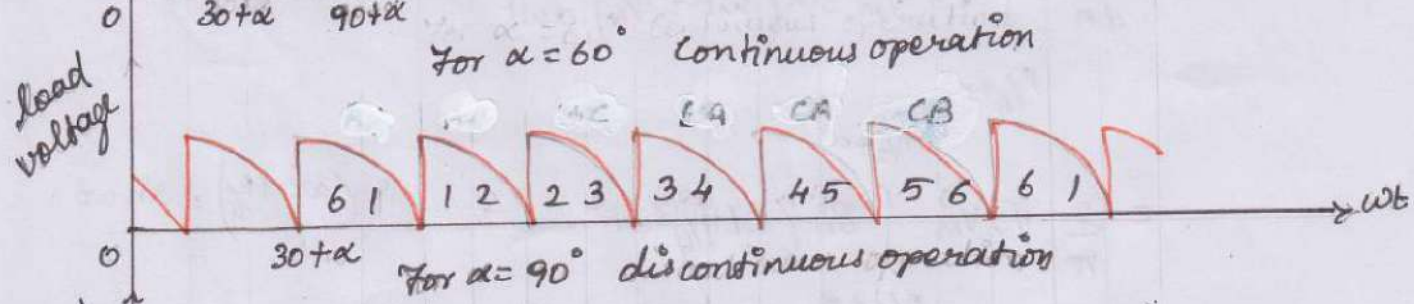 0 30+α 90+α
For α = 60° Continuous operation
load
voltage
CA CB
6 1 1 2 2 3 3 4 4 5 5 6 6 1
ωt
0 30+α
For α = 90° discontinuous operation